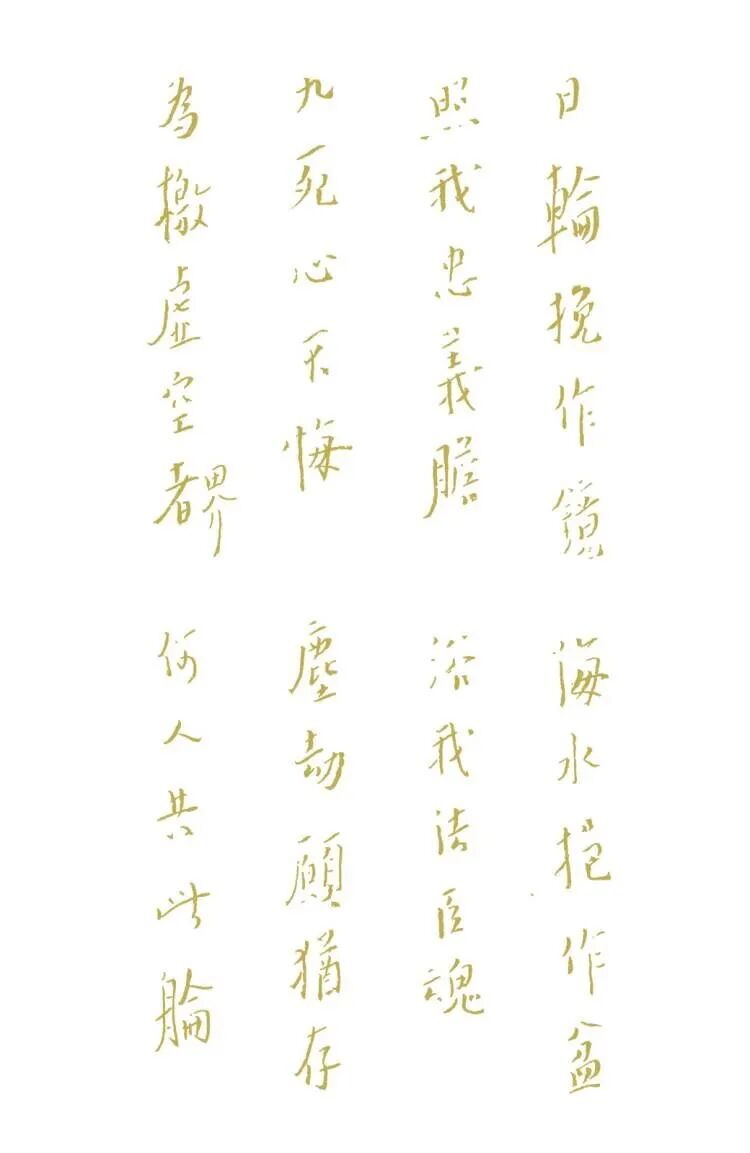 日輪挽作鏡 海水挹作盆
照我忠義膽 浴我法臣魂
九死心不悔 塵劫願猶存
為檄虛空者界 何人共此輪